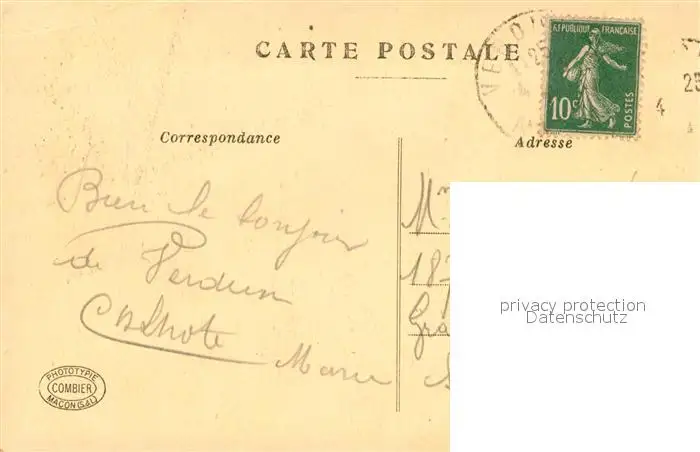 CARTE POSTALE
VERDUN
25
RÉPUBLIQUE FRANÇAISE
10c
POSTES
25
4
Correspondance
Adresse
Bien le bonjour
de Verdun
Marie
M
18
Gra
privacy protection
Datenschutz
PHOTOTYPIE
COMBIER
MACON (S&L)